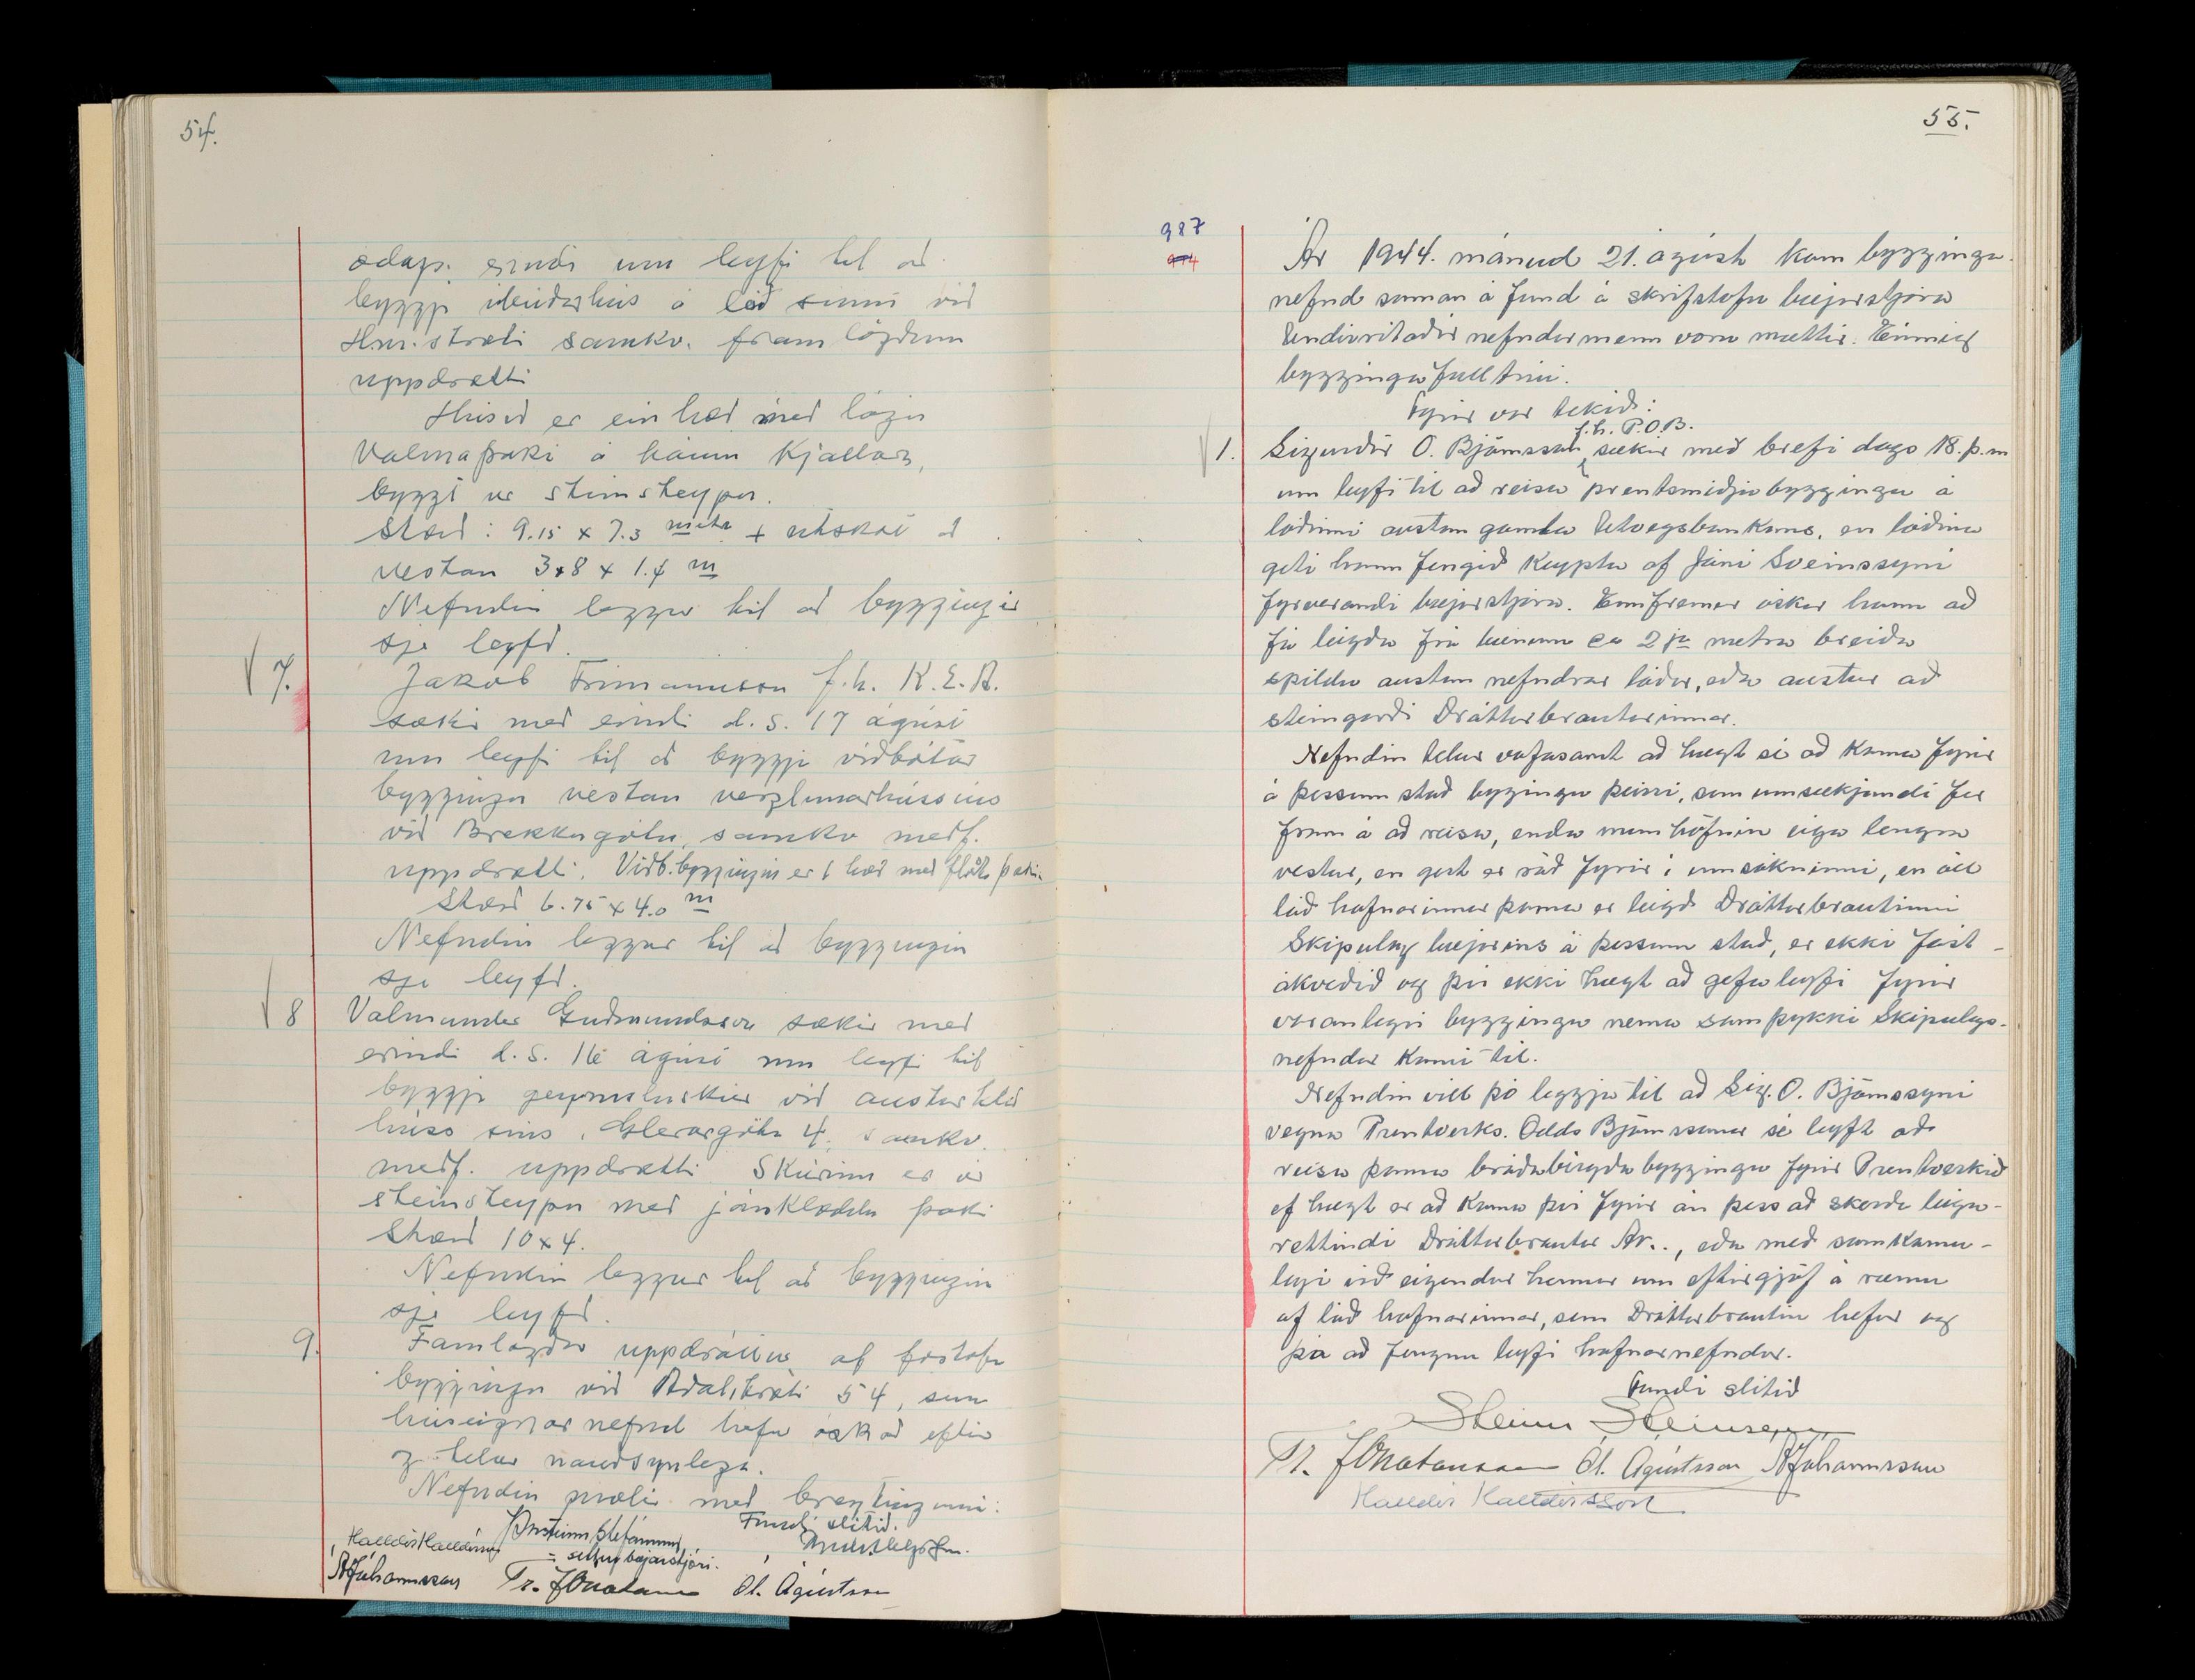 54.
ódags. erindi um leyfi til að
byggja íbúðarhús á lóð sinni við
Hm.stræti samkv. framlögðum
uppdrætti
Húsið er ein hæð með lágu
Valmaþaki á háum kjallara,
byggt úr steinsteypu.
Stærð: 9.15 x 7.3 metr + útskot að
vestan 3.8 x 1.4 m
Nefndin leggur til að byggingin
sje leyfð.
7. Jakob Frímannsson f.h. K.E.A.
sækir með erindi d.s. 17 ágúst
um leyfi til að byggja viðbótar
byggingu vestan verzlunarhússins
við Brekkugötu, samkv meðf.
uppdrætti. Viðb.byggingin er 1 hæð með flötu þaki.
Stærð 6.75 x 4.0 m
Nefndin leggur til að byggingin
sje leyfð.
8 Valmundur Guðmundsson sækir með
erindi d.s. 16 ágúst um leyfi til
byggja geymsluskúr við austurhlið
húss síns, Glerárgötu 4, samkv.
meðf. uppdrætti Skúrinn er úr
steinsteypu með járnklæddu þaki
Stærð 10x4.
Nefndin leggur til að byggingin
sje leyfð.
9. Framlagður uppdráttur af forstofu
byggingu við Aðalstræti 54, sem
húseignarnefnd hefur óskað eftir
og telur nauðsynlega.
Nefndin mælir með breytingunni.
Fundi slitið.
Halldór Halldórsson Þorsteinn Stefánsson
settur bæjarstjóri.
A Jóhannsson Tr. Jónatansson Ól. Ágústsson
55.
987
974
Ár 1944. mánud 21. ágúst kom bygginga
nefnd saman á fund á skrifstofu bæjarstjóra
Undirritaðir nefndarmenn voru mættir. Einnig
byggingafulltrúi.
Fyrir var tekið:
f.h. P.O.B.
1. Sigurður O. Björnsson sækir með brefi dags 18. þ.m
um leyfi til að reisa prentsmiðjubyggingu á
lóðinni austan gamla Útvegsbankans, en lóðina
geti hann fengið keypta af Jóni Sveinssyni
fyrverandi bæjarstjóra. Ennfremur óskar hann að
fá leigða frá bænum ca 2ja metra breiða
spildu austan nefndrar lóðar, eða austur að
steingarði Dráttarbrautarinnar.
Nefndin telur vafasamt að hægt sé að koma fyrir
á þessum stað byggingu þeirri, sem umsækjandi fer
fram á að reisa, enda mun höfnin eiga lengra
vestur, en gert er ráð fyrir í umsókninni, en öll
lóð hafnarinnar þarna er leigð Dráttarbrautinni
Skipulag bæjarins á þessum stað, er ekki fast-
ákveðið og því ekki hægt að gefa leyfi fyrir
varanlegri byggingu nema samþykki Skipulags-
nefndar komi til.
Nefndin vill þó leggja til að Sig. O. Björnssyni
vegna Prentverks. Odds Björnssonar sé leyft að
reisa þarna bráðabirgða byggingu fyrir Prentverkið
ef hægt er að koma því fyrir án þess að skerða leigu-
réttindi Dráttarbrautar Ak.., eða með samkomu-
lagi við eigendur hennar um eftirgjöf á ræmu
af lóð hafnarinnar, sem Dráttarbrautin hefur og
þá að fengnu leyfi hafnarnefndar.
Fundi slitið
Steinn Steinsen
Tr. Jónatansson Ól. Ágústsson A Jóhannsson
Halldór Halldórsson